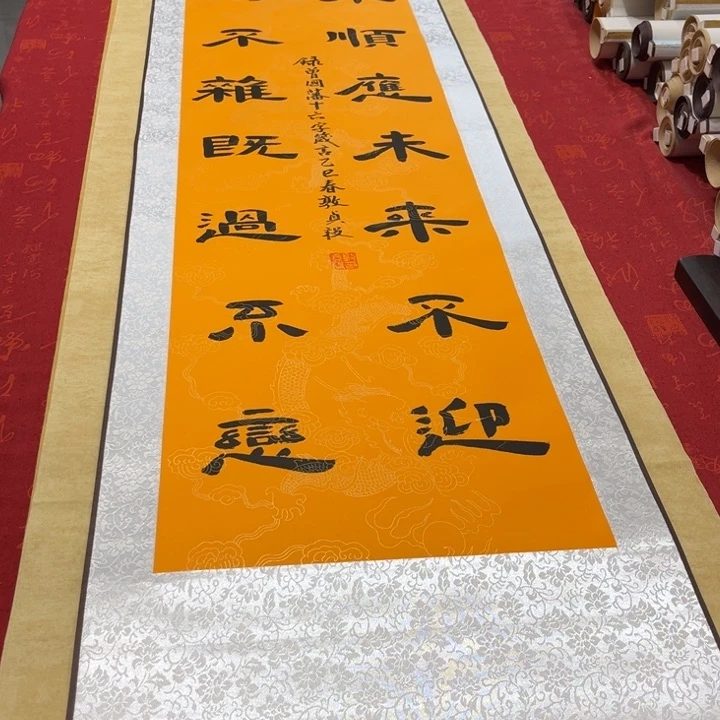 順應未來不迎
不雜既過不戀
錄曾國藩十六字箴言乙巳春敦貞